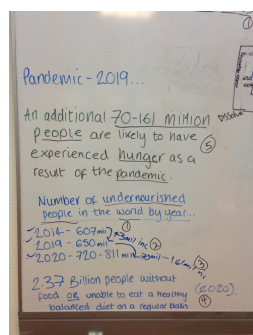 Pandemic - 2019...
An additional 70-161 million
people are likely to have
experienced hunger as a
result of the pandemic.
⑤
Number of undernourished
people in the world by year...
①
2014 - 607mil
2019 - 650mil
43mil inc ②
2020 - 720 - 811mil
③
2.37 Billion people without (2020).
food OR unable to eat a healthy
balanced diet on a regular basis
④